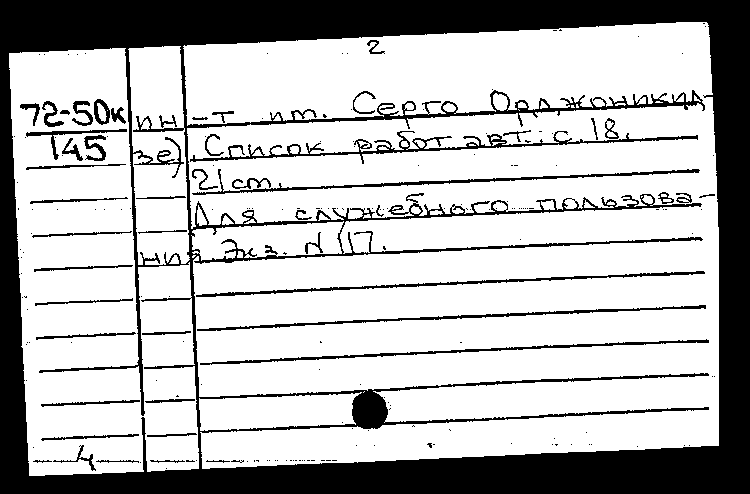 2
72-50к ин-т им. Серго Орджоникид-
145 зе). Список работ авт.: с. 18.
21 см.
Для служебного пользова-
ния. Экз. N 117.
4